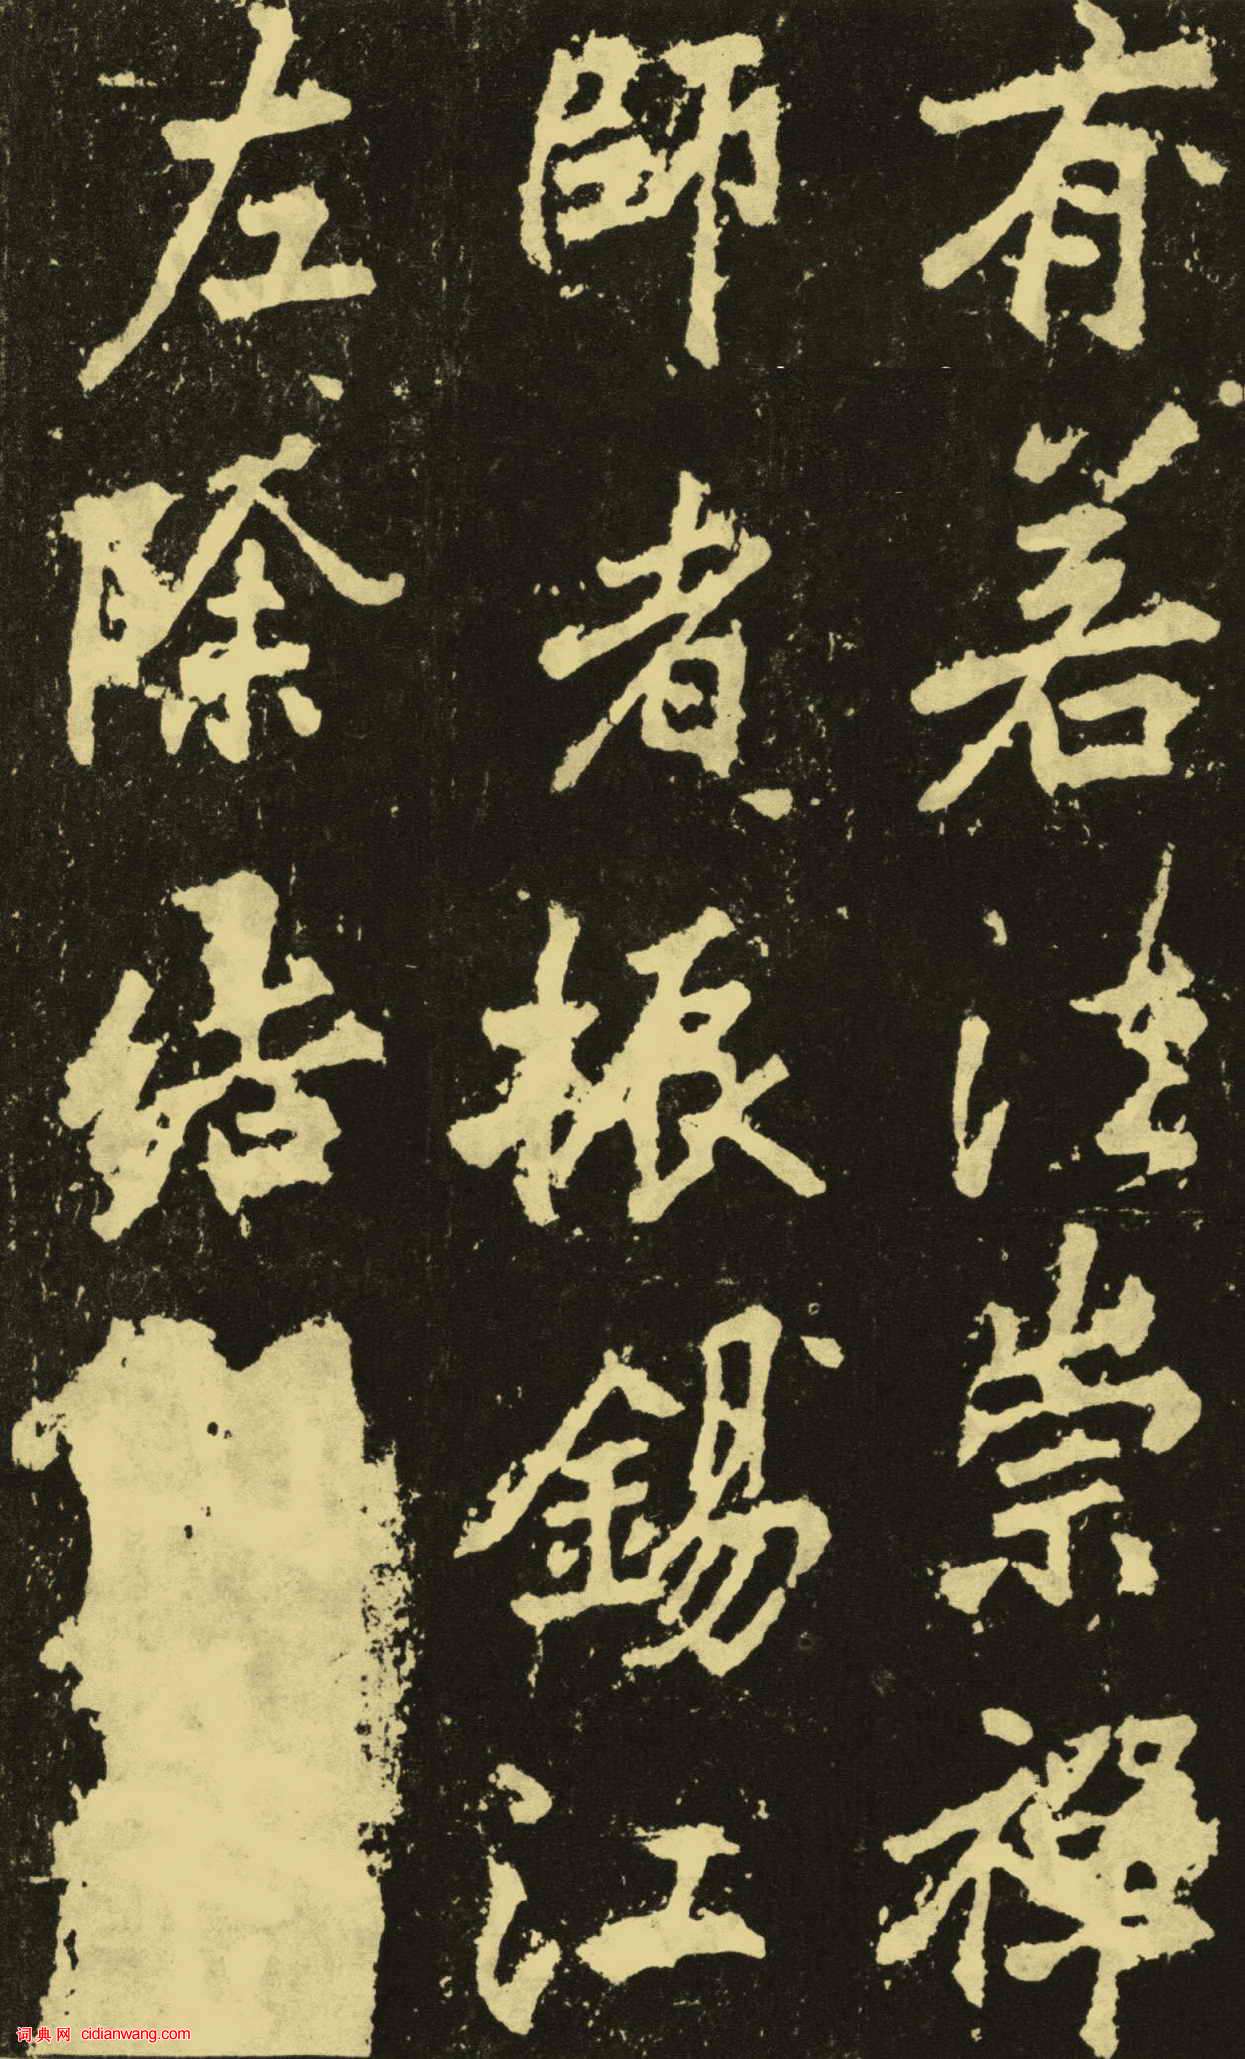 有若法崇禪
師者振錫江
左除結
词典网 cidianwang.com